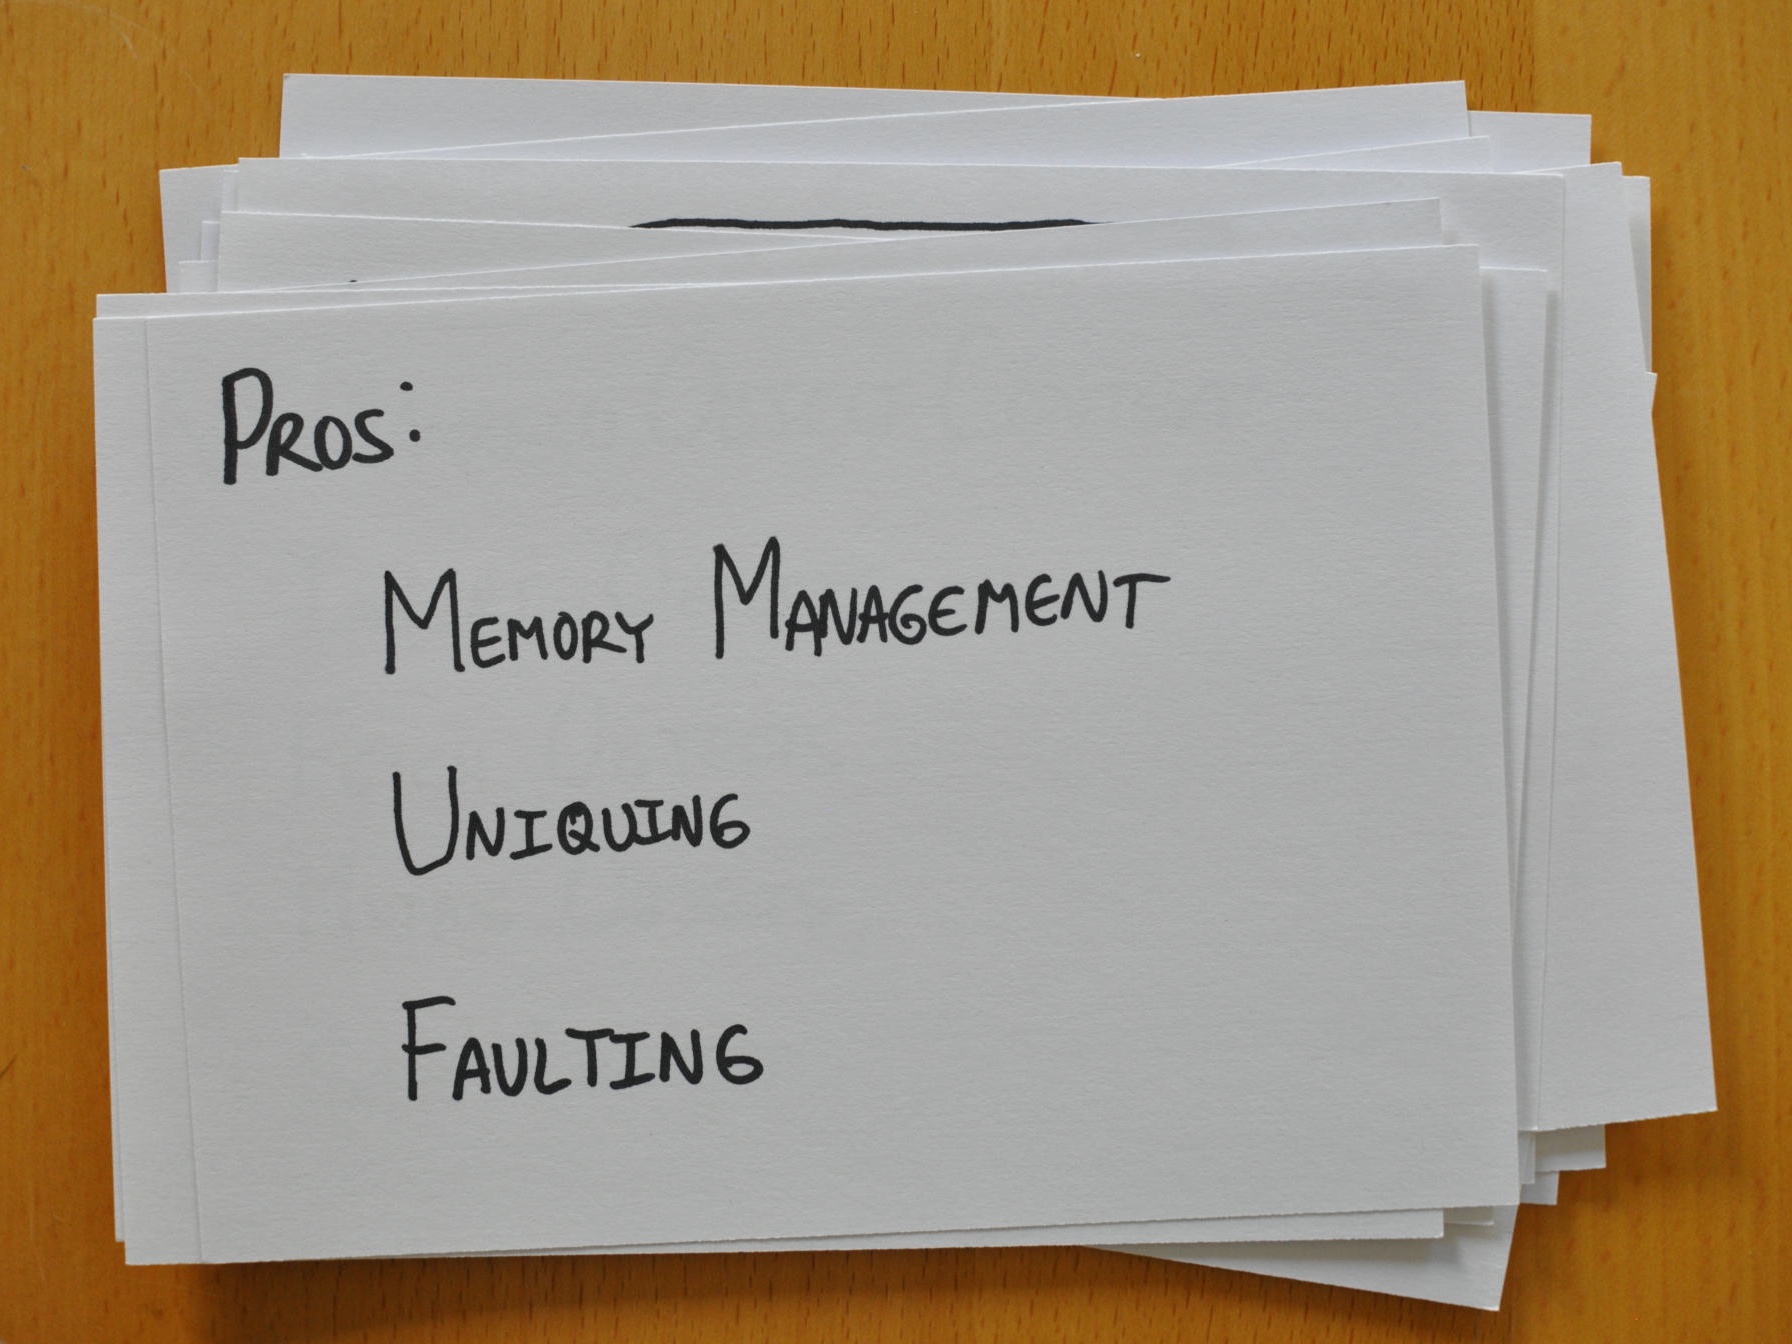 Pros:
Memory Management
Uniquing
Faulting